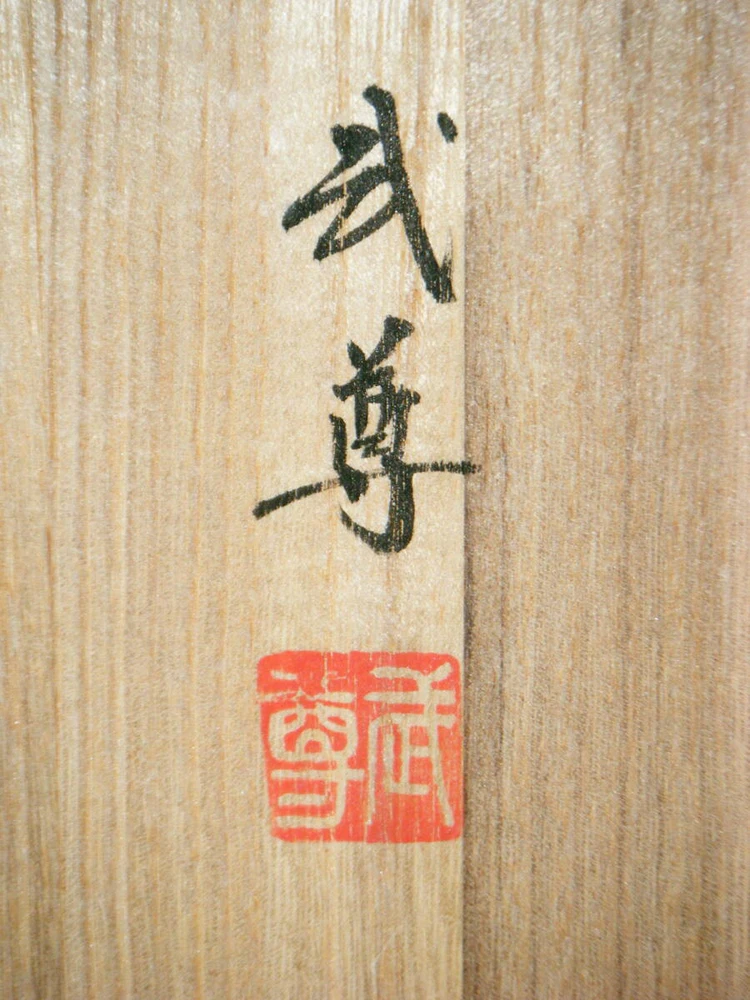 武尊
武尊